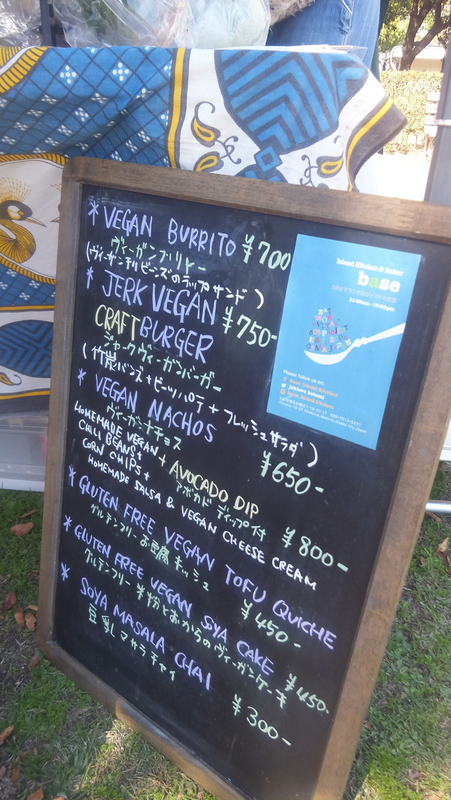 * VEGAN BURRITO ¥700
ヴィーガンブリトー
(ヴィーガンチリビーンズのラップサンド)
* JERK VEGAN
CRAFT BURGER ¥750-
ジャークヴィーガンバーガー
(竹炭バンズ+ビーツパテ+フレッシュサラダ)
* VEGAN NACHOS ¥650-
ヴィーガンナチョス
+ AVOCADO DIP
アボカドディップ付 ¥800-
HOMEMADE VEGAN
CHILI BEANS +
CORN CHIPS +
HOMEMADE SALSA & VEGAN CHEESE CREAM
* GLUTEN FREE VEGAN TOFU QUICHE
グルテンフリーお豆腐キッシュ ¥450-
* GLUTEN FREE VEGAN SOYA CAKE
グルテンフリー米粉とおからのヴィーガンケーキ ¥450-
* SOYA MASALA CHAI
豆乳マサラチャイ ¥300-
Island Kitchen & Baker
base
11:00am - 19:00pm
Please follow us on: